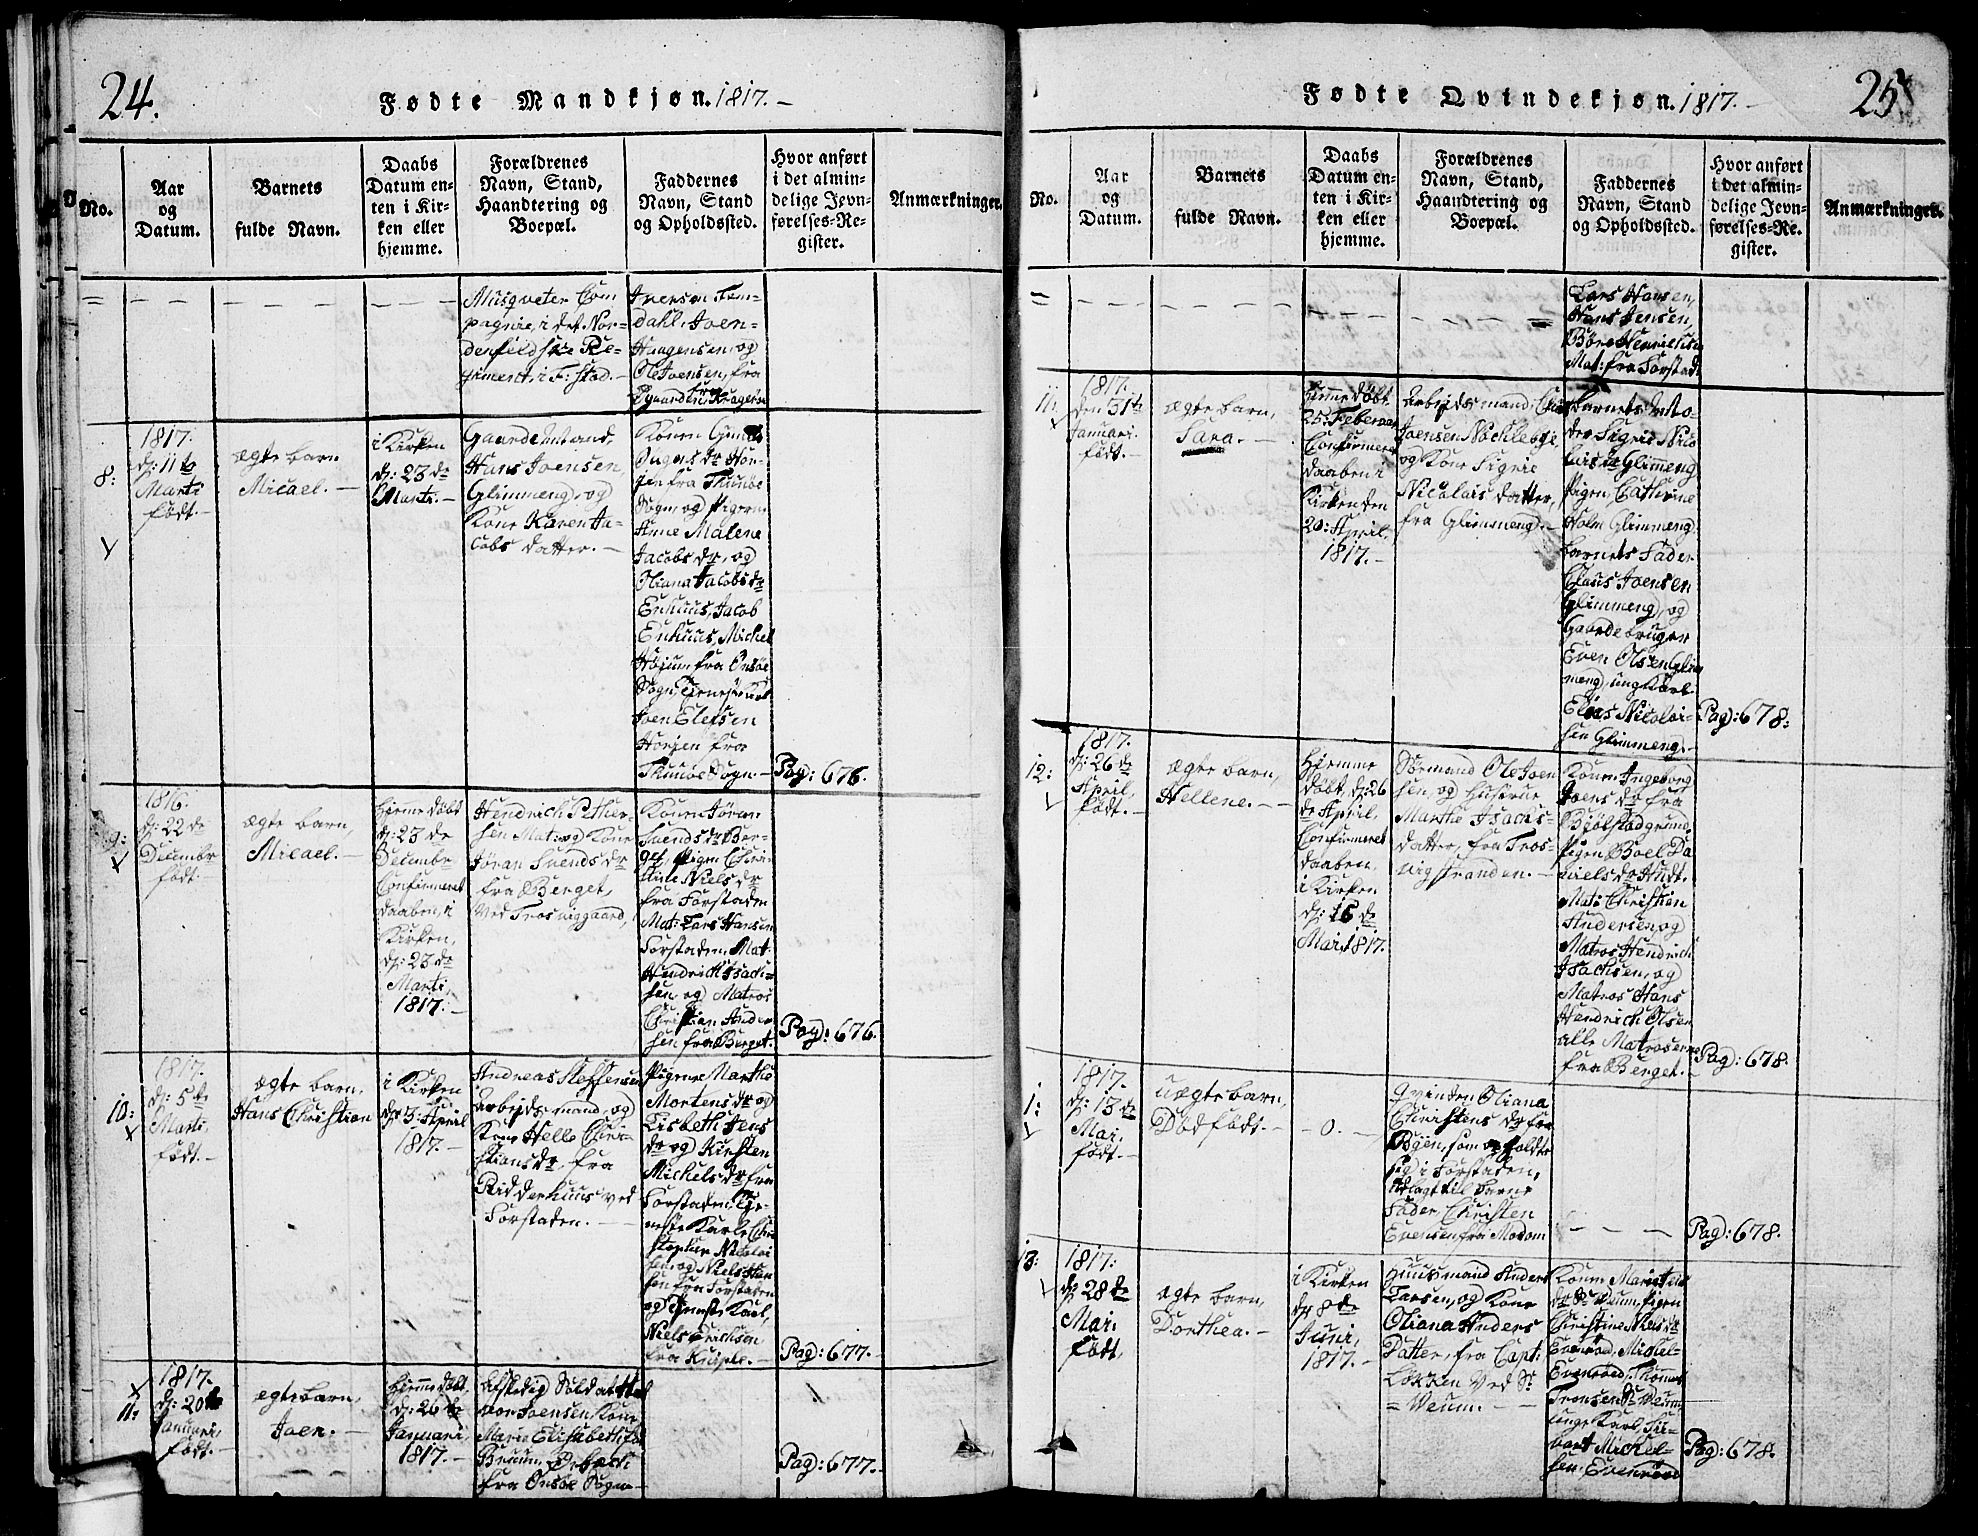 24.
Fødte Mandkjøn. 1817.-
No.
Aar
og
Datum.
Barnets
fulde Navn.
Daabs
Datum en-
ten i Kir-
ken eller
hjemme.
Forældrenes
Navn, Stand,
Haandtering og
Boepæl.
Faddernes
Navn, Stand
og Opholdssted.
Hvor anført
i det almin-
delige Jevn-
førelses-Re-
gister.
Anmærkninger.
Musqveter Com
pagnie, i det Nor-
denfeldske Re-
giment, i F: stad.-
Iversen Tom-
dahl, Joen
Haagensen, og
Ole Joensen, fra
8:
1817.
d: 11te
Marti
født.-
ægte barn
Micael.-
i Kirken
d: 23de
Marti.-
Gaardemand,
Hans Joensen,
Glimmeng, og
Kone Karen Ja-
cobs datter.-
Sogn, og Pigerne
Anne Malene
Jacobs dr, og
Oliana Jacobs dr
Enhuus, Jacob
Enhuus, Michel
Høium fra Onsøe
Sogn,
Joen Elefsen
fra
Thunøe Sogn-
Pag: 676.
9:
1816.
d: 22de
Decembr
født.
ægte barn,
Micael.-
hjemme døbt
d: 23de
Decembr
Confirmeret
daaben, i
Kirken,
d: 23de
Marti,
1817.-
Hendrich Pether-
sen Mat: og Kone
Jøran Svends dr
fra Berget,
ved Trosviggaard,
Konen Jøran
Svends dr Ber-
get, Pigen Chri-
stine Niels dr
fra Forstaden
Mat: Lars Hansen
Forstaden, Mat:
Hendrich Isach-
sen og Matros
Christian Ander
sen fra Berget.
Pag: 676.
10:
1817.
d: 5te
Marti.
født.-
ægte barn,
Hans Christian
i Kirken
d: 3: April
1817.-
Andreas Steffensen
Arbeids mand, og
Kone Helle Chri-
stians dr, fra
Ridderhuus ved
Forstaden.-
Pigerne Marthe
Mortens dr og
Lisbeth Jens
dr og Kirsten
Michels dr fra
Forstaden,
Karle Chri
stopher Nicolai
sen, og Niels Han
sen fra Forstaden
og Tjeneste Karl,
Niels Erichsen
fra
Pag: 677.-
11:
1817.
d: 20de
Januari,
født.-
ægte barn,
Joen.-
hjemme døbt,
d: 26de
Januari,
1817.-
Afskediget Soldat Hal
vor Joensen, Kone
Maria Elisabeth
fra Onsøe Sogn-
Pag: 677.-
25
Fødte Qvindekjøn. 1817.-
No.
Aar
og
Datum.
Barnets
fulde Navn.
Daabs
Datum en-
ten i Kir-
ken eller
hjemme.
Forældrenes
Navn, Stand,
Haandtering og
Boepæl.
Faddernes
Navn, Stand
og Opholdssted.
Hvor anført
i det almin-
delige Jevn-
førelses-Re-
gister.
Anmærkninger.
Lars Hansen,
Hans Jensen,
Børe Henrichsen
Mat: fra Forstad
11:
1817.
den 31te
Januari.
født.-
ægte barn,
Sara.-
hjemme døbt
25: Februar
Confirmeret
daaben i
Kirken den
20: April,
1817.-
Arbeids mand, Claus
Joensen Nøchleberg
og Kone Sigrie
Nicolais datter,
fra Glimmeng.-
Barnets Mo-
der Sigrie Nico
lais dr Glimmeng
Pigen, Cathrine
Holm Glimmeng
Barnets Fader
Claus Joensen
Glimmeng, og
Gaardebruger
Even Olsen Glim
meng, ungkarl
Elias Nicolai-
sen Glimmeng.-
Pag: 678:
12:
1817.
d: 26de
April,
født.-
ægte barn,
Hellene.-
hjemme
døbt, d: 26
de April,
Confirmeret
daaben,
i Kirken
d: 16de
Mai 1817.
Sømand Ole Joen
sen, og hustrue
Marthe Isachs-
datter, fra Tros-
vigstranden.-
Konen Ingeborg
Joens dr fra
Bjølstadgrund
Pigen Boel Da
niels dr Hudt.
Mat: Christian
Andersen, og
Matros Hendrich
Isachsen, og
Matros Hans
Hendrich Olsen
alle Matroserne
fra Berget.-
Pag: 678.
1:
1817.
d: 13de
Mai.
født.-
uægte barn,
Dødfødt.-
-0.-
Qvinden Oliana
Christens dr fra
Byen, som opholder
sig i Forstaden,
udlagt til barne
fader, Christen
Evensen fra Modom
Pag: 678.
13:
1817:
d: 28de
Mai.
født.
ægte barn,
Dorthea.-
i Kirken
d: 8de
Juni,
1817.-
Huusmand Anders
Larsen, og Kone
Oliana Anders
Datter, fra Capt:
Løkken ved St
=Weum.-
Konen Maria
dr St Weum, Pigen
Christine Niels dr
Evenrød, Michel
Evenrød, Thomas
Tronsen St Weum
unge Karl, Si-
vert Michel-
sen Evenrød
Pag: 678.